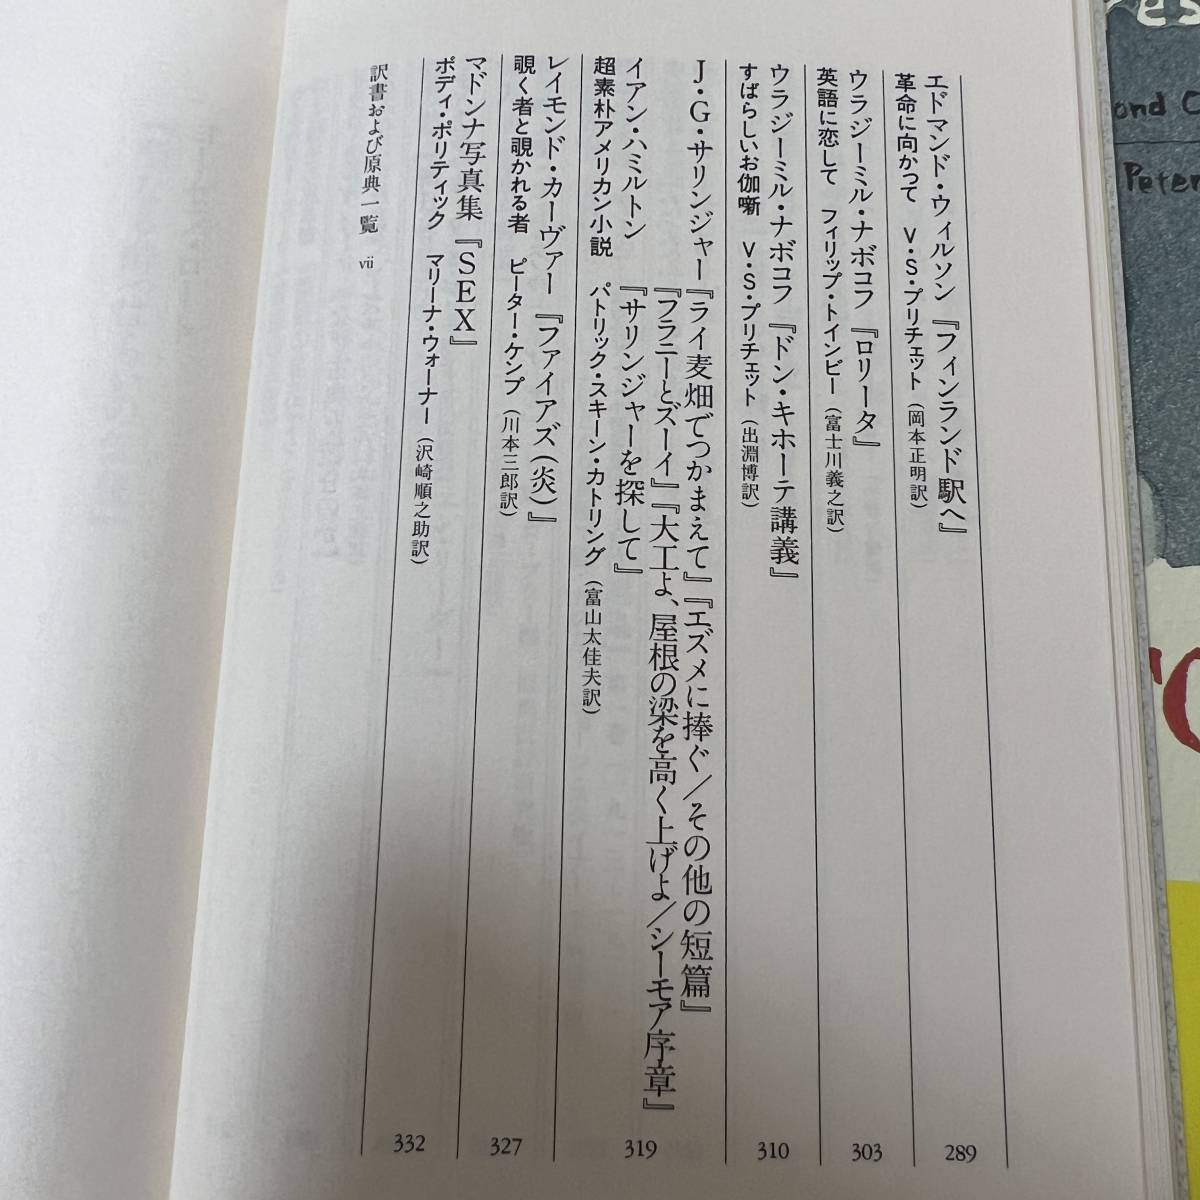 エドマンド・ウィルソン『フィンランド駅へ』
革命に向かって V・S・プリチェット（岡本正明訳） 289
ウラジーミル・ナボコフ『ロリータ』
英語に恋して フィリップ・トインビー（富士川義之訳） 303
ウラジーミル・ナボコフ『ドン・キホーテ講義』
すばらしいお伽噺 V・S・プリチェット（出淵博訳） 310
J・G・サリンジャー『ライ麦畑でつかまえて』『エズメに捧ぐ／その他の短篇』
『フラニーとズーイ』『大工よ、屋根の梁を高く上げよ／シーモア序章』
イアン・ハミルトン『サリンジャーを探して』
超素朴アメリカン小説 パトリック・スキーン・カトリング（富山太佳夫訳） 319
レイモンド・カーヴァー『ファイアズ（炎）』
覗く者と覗かれる者 ピーター・ケンプ（川本三郎訳） 327
マドンナ写真集『SEX』
ボディ・ポリティック マリーナ・ウォーナー（沢崎順之助訳） 332
訳書および原典一覧 vii
ond C
Peter